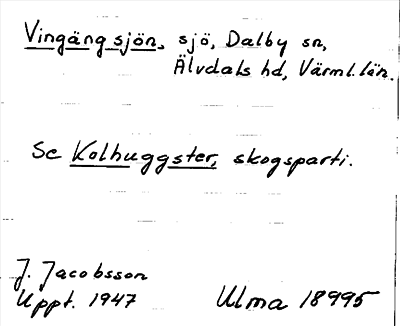 Vingängsjön, sjö, Dalby sn,
Älvdals hd, Värml. län.
Se Kolhuggster, skogsparti.
J. Jacobsson
Uppt. 1947
Ulma 18995